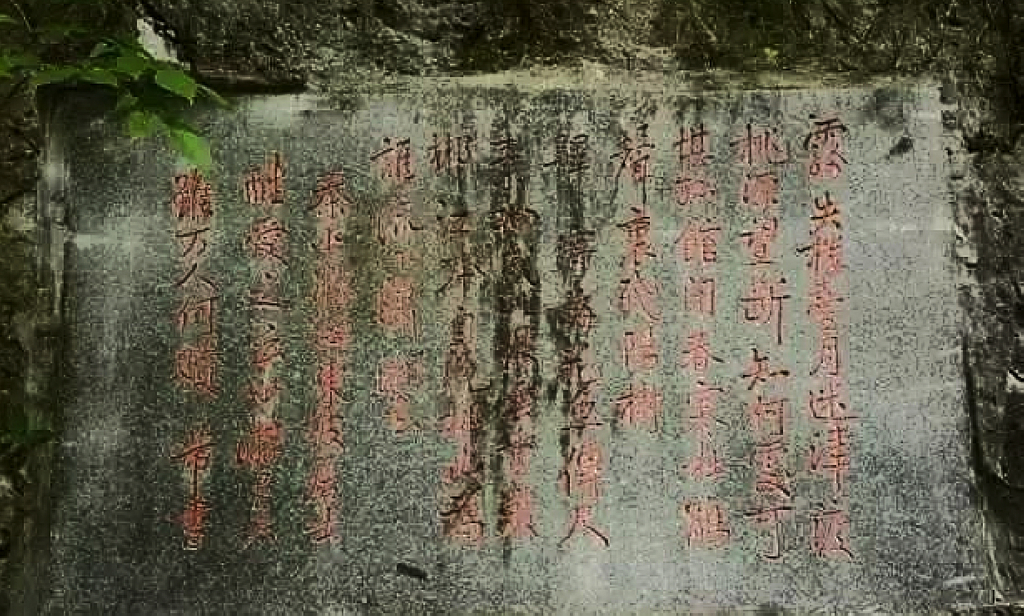 霧失樓臺月迷津渡
桃源望断知何處可
堪孤館閉春寒杜鵑
聲裏殘陽樹
驛寄梅花魚傳尺
素砌成此恨無重數
郴江本自繞郴山為
誰流下瀟湘去
秦少游辭東坡居士
酷愛之云少游已矣
雖万人何贖 芾書